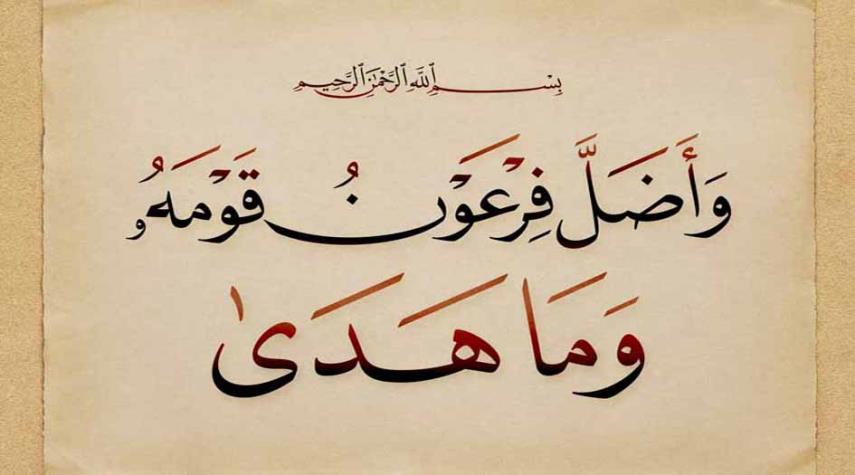 بِسْمِ ٱللَّهِ ٱلرَّحْمَٰنِ ٱلرَّحِيمِ
وَأَضَلَّ فِرْعَوْنُ قَوْمَهُۥ
وَمَا هَدَىٰ